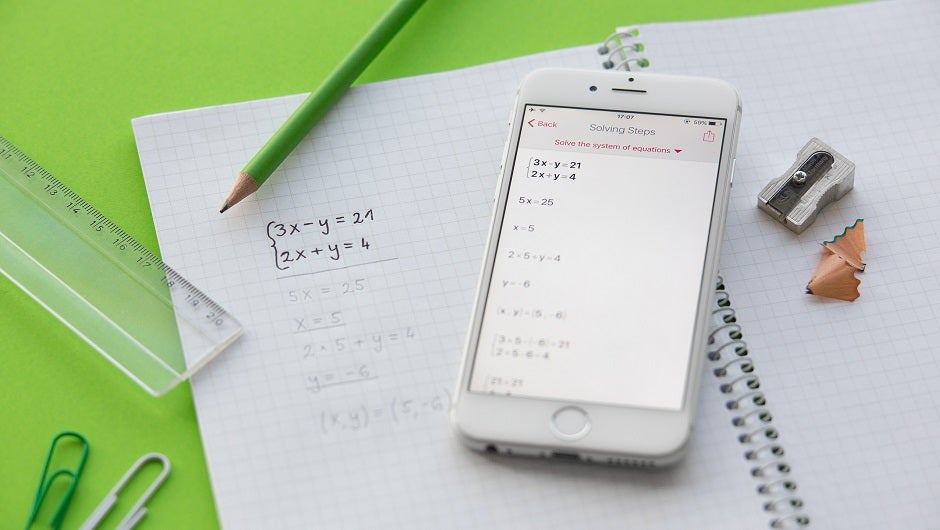 11 12 13 14 15 16 17 18 19 20
{3x-y=21
2x+y=4
5x = 25
x = 5
2×5+y=4
y=-6
(x,y)=(5,-6)
17:07
59%
Back
Solving Steps
Solve the system of equations
{3x-y=21
2x+y=4
5x=25
x=5
2×5+y=4
y=-6
(x, y)=(5, -6)
{3×5-(-6)=21
2×5-6=4
{21=21